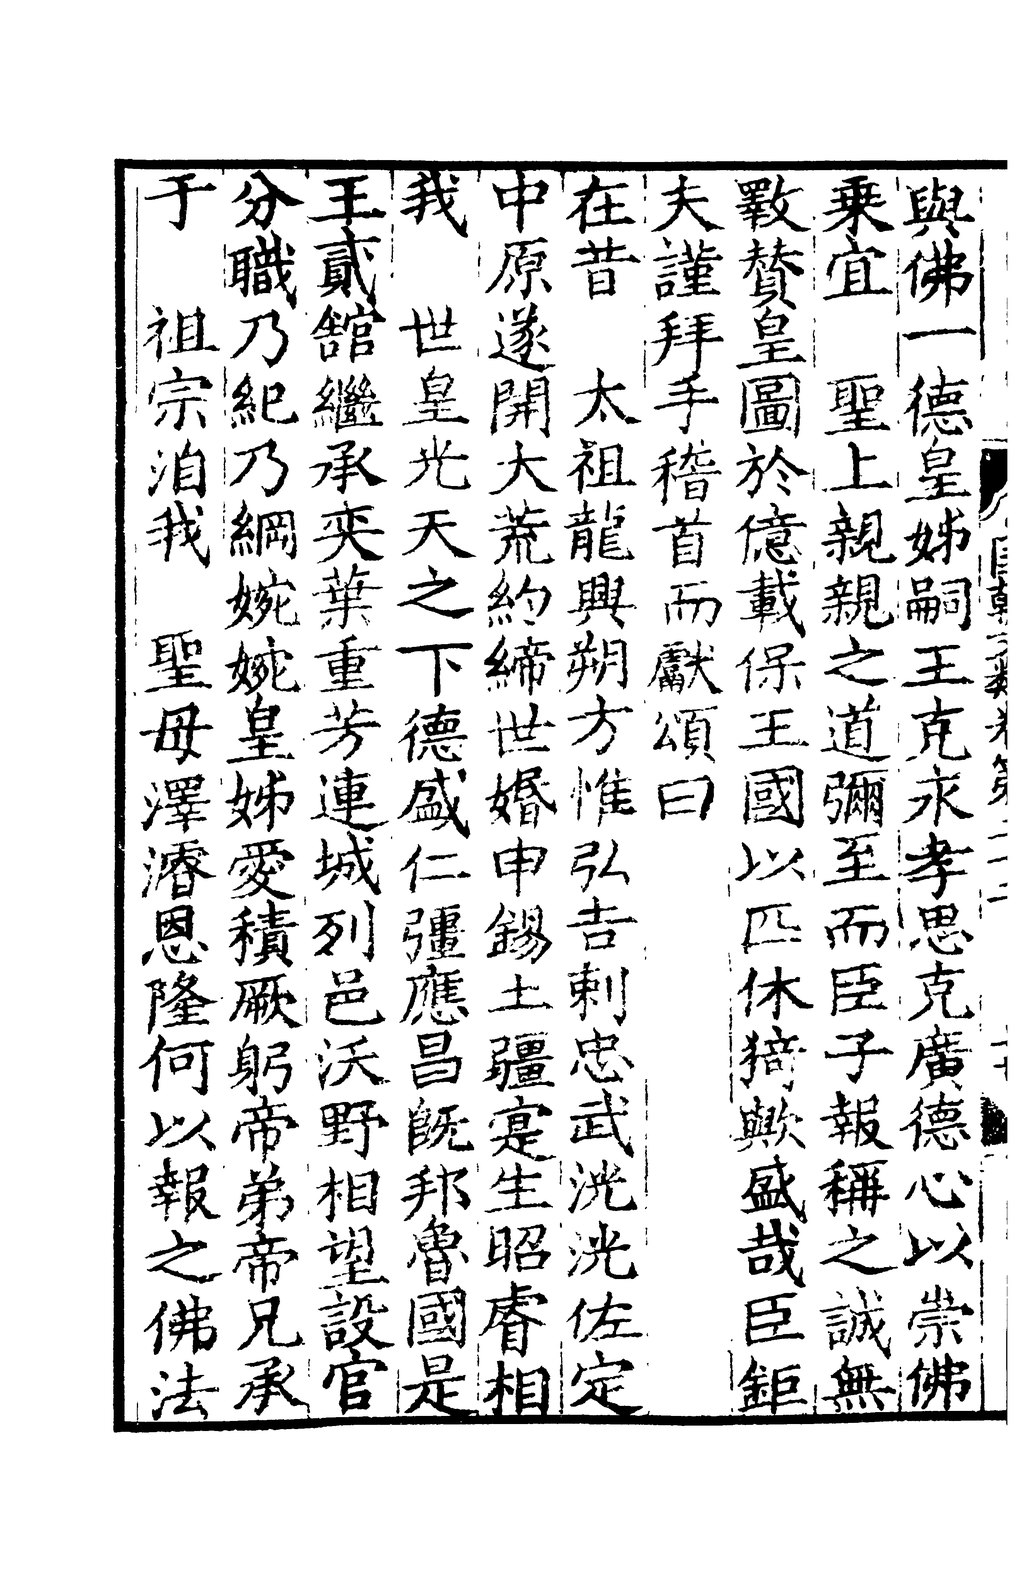 與佛一德皇姊嗣王克永孝思克廣德心以崇佛
乗宜　聖上親親之道彌至而臣子報稱之誠無
斁贊皇圖於億載保王國以匹休猗歟盛哉臣鉅
夫謹拜手稽首而獻頌曰
在昔　太祖龍興朔方惟弘吉剌忠武洸洸佐定
中原遂開大荒約締世婚申錫土疆寔生昭睿相
我　世皇光天之下德盛仁彊應昌旣邦魯國是
王貳舘繼承奕葉重芳連城列邑沃野相望設官
分職乃紀乃綱婉婉皇姊愛積厥躬帝弟帝兄承
于　祖宗洎我　聖母澤濬恩隆何以報之佛法